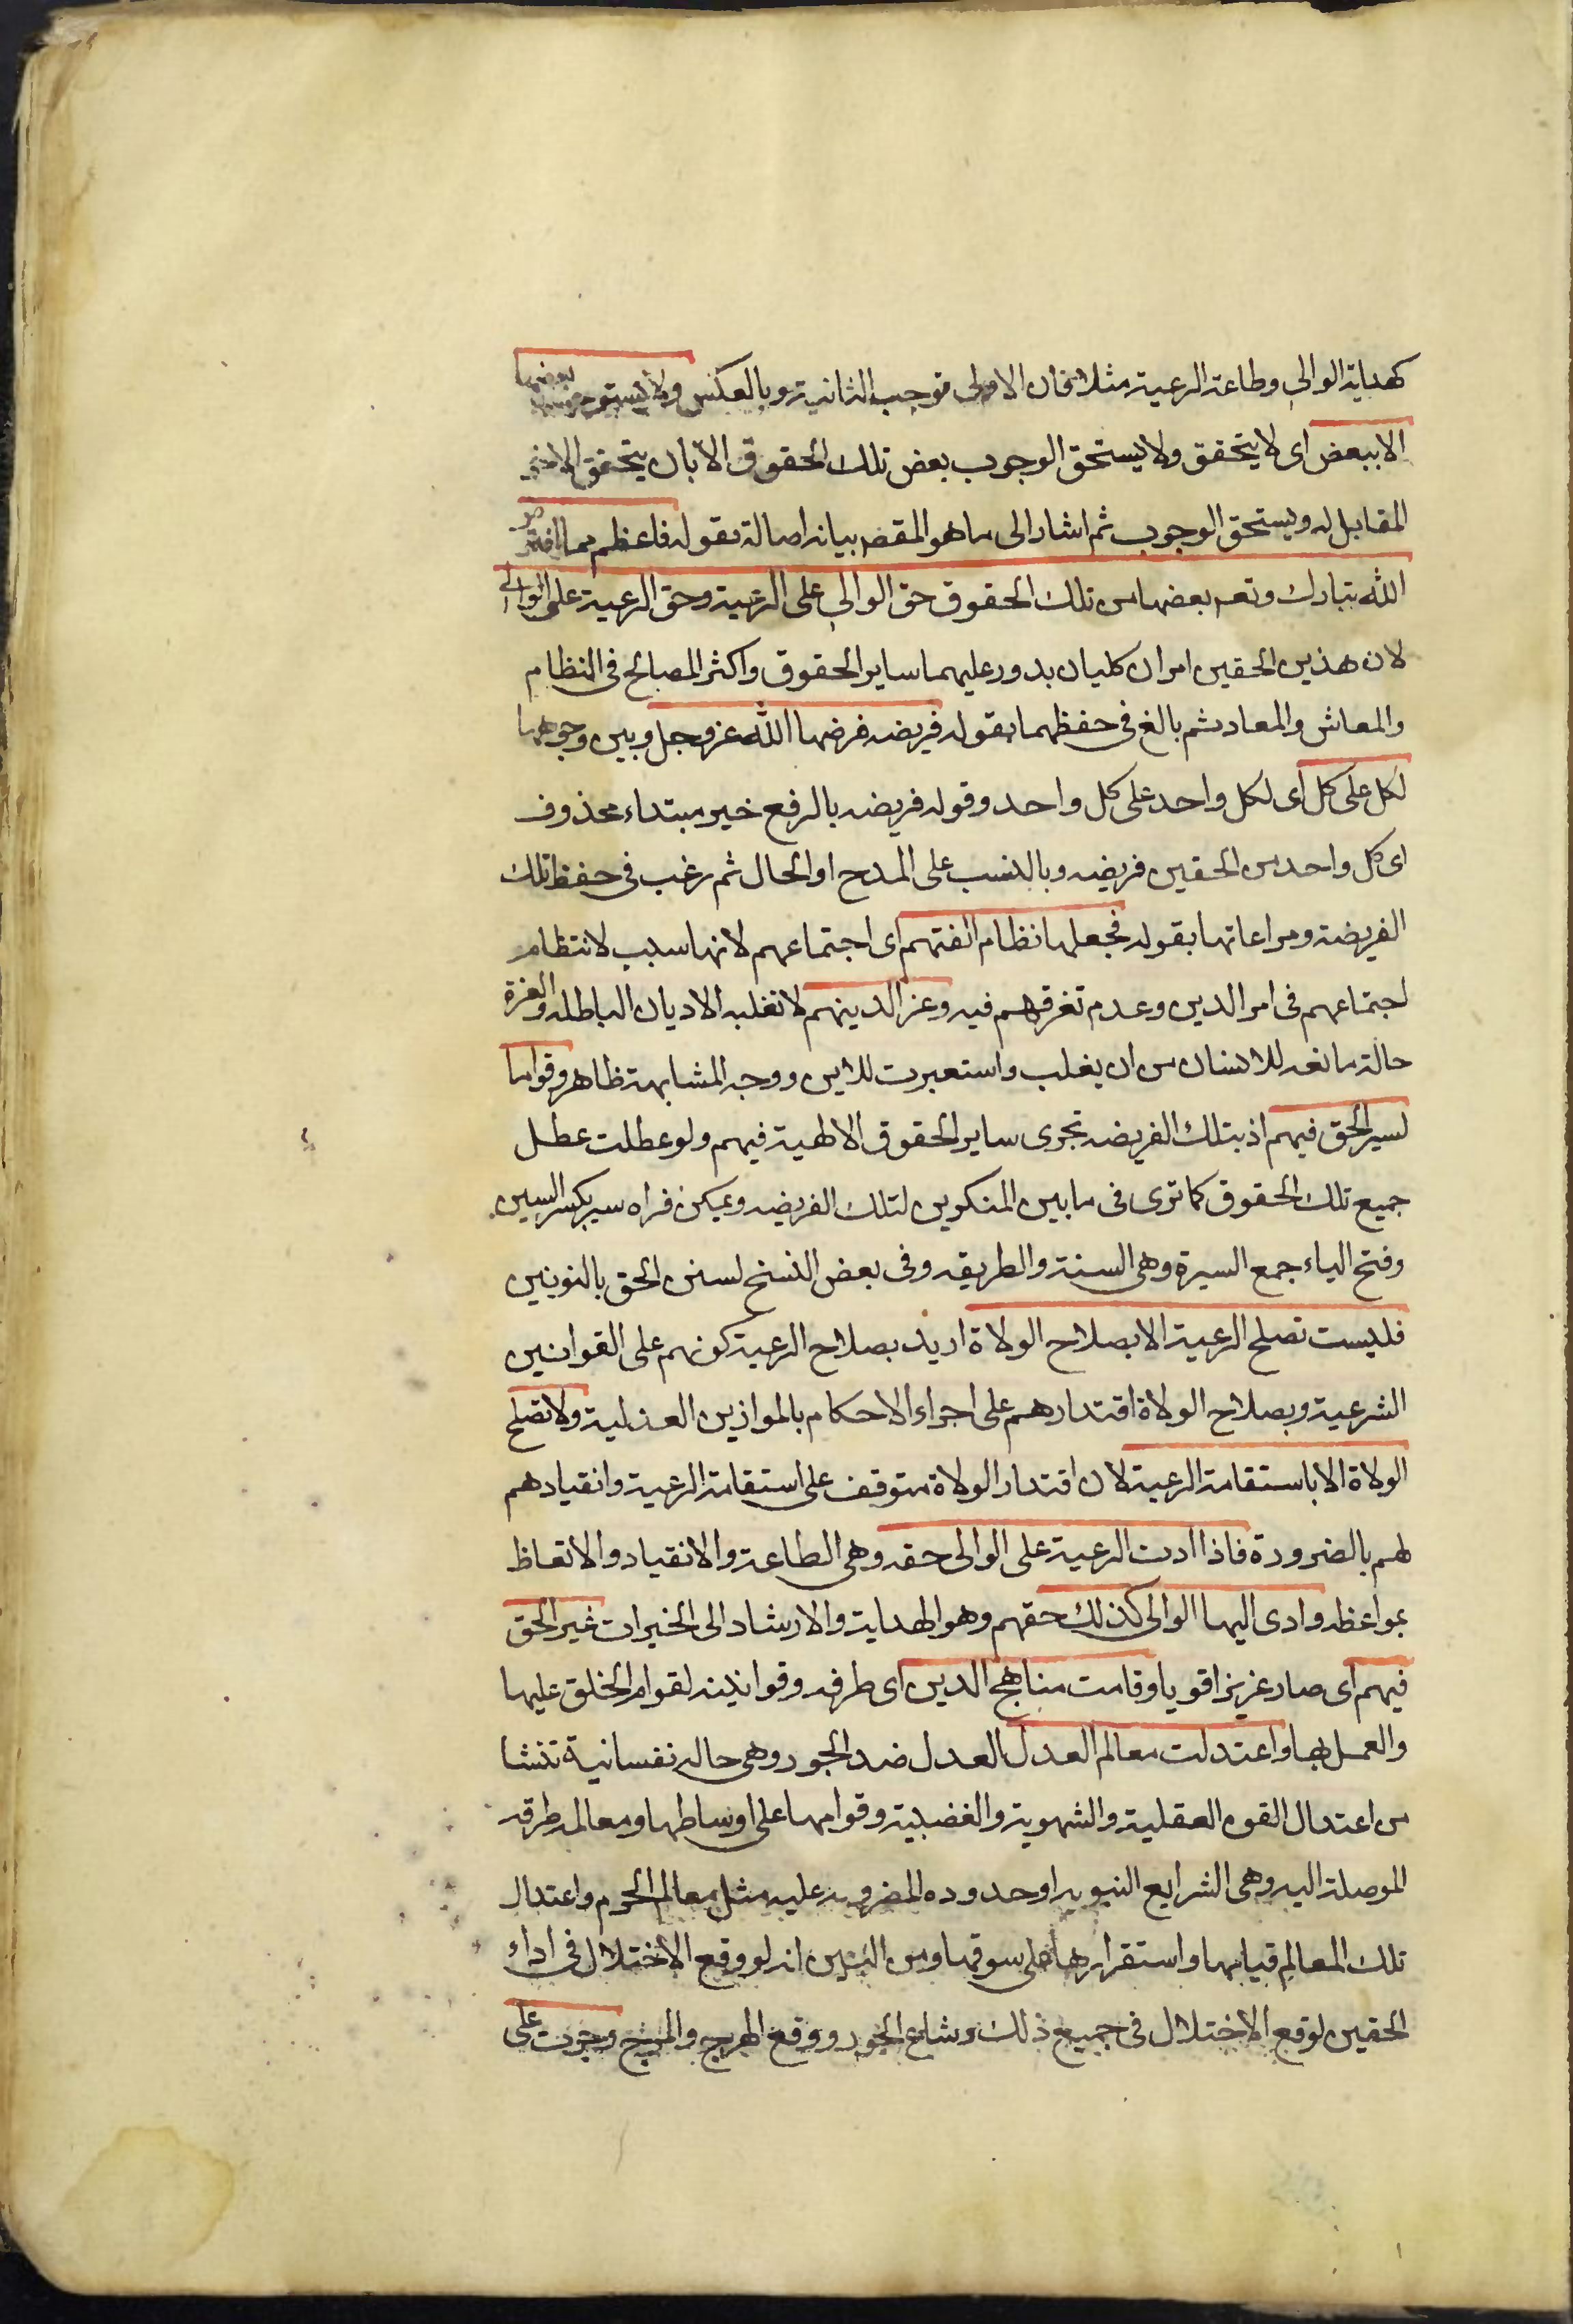 كهداية الوالى وطاعة الرعية مثلا فان الاولى توجب الثانية وبالعكس ولا يستوجب بعضها
الا ببعض اى لا يتحقق ولا يستحق الوجوب بعض تلك الحقوق الا بان يتحقق الاخر
المقابل له ويستحق الوجوب ثم اشار الى ما هو المقصد بيانه اصالة بقوله فاعظم مما افترض
الله تبارك وتعـ بعضها من تلك الحقوق حق الوالى على الرعية وحق الرعية على الوالى
لان هذين الحقين امران كليان يدور عليهما ساير الحقوق واكثر المصالح فى النظام
والمعاش والمعاد ثم بالغ فى حفظهما بقوله فريضه فرضها الله عز وجل وبين وجوبها
لكل على كل اى لكل واحد على كل واحد وقوله فريضه بالرفع خبر مبتداء محذوف
اى كل واحد من الحقين فريضه وبالنسب على المدح او الحال ثم رغب فى حفظ تلك
الفريضة ومراعاتها بقوله فجعلها نظام الفتهم اى اجتماعهم لانها سبب لانتظام
اجتماعهم فى امر الدين وعدم تفرقهم فيه وعز الدينهم لا تغلبه الاديان الباطله والعزة
حالة مانعه للانسان من ان يغلب واستعيرت للدين ووجه المشابهة ظاهر وقواما
لسير الحق فيهم اذ بتلك الفريضه تجرى ساير الحقوق الالهية فيهم ولو عطلت عطل
جميع تلك الحقوق كما ترى فى ما بين المنكرين لتلك الفريضه ويمكن قراه سير بكسر السين
وفتح الياء جمع السيرة وهى السنة والطريقه وفى بعض النسخ لسنن الحق بالنونين
فليست تصلح الرعية الا بصلاح الولاة اريد بصلاح الرعية كونهم على القوانين
الشرعية وبصلاح الولاة اقتدارهم على اجراء الاحكام بالموازين العدلية ولا تصلح
الولاة الا باستقامة الرعية لان اقتدار الولاة متوقف على استقامة الرعية وانقيادهم
لهم بالضرورة فاذا ادت الرعية على الوالى حقه وهى الطاعة والانقياد والاتعاظ
بمواعظه وادى اليها الوالى كذلك حقهم وهو الهداية والارشاد الى الخيرات عز الحق
فيهم اى صار عزيزا قويا وقامت مناهج الدين اى طرقه وقوانينه لقوام الخلق عليها
والعمل بها واعتدلت معالم العدل العدل ضد الجور وهى حاله نفسانية تنشا
من اعتدال القوه العقلية والشهوية والغضبية وقوامها على اوساطها ومعالمه طرقه
الموصلة اليه وهى الشرايع النبويه او حدوده المضروبه عليه مثل معالم الحرم واعتدال
تلك المعالم قيامها واستقرارها على سوقها ومن البين انه لو وقع الاختلال فى اداء
الحقين لوقع الاختلال فى جميع ذلك وشاع الجور ووقع الهرج والمرج وجرت على